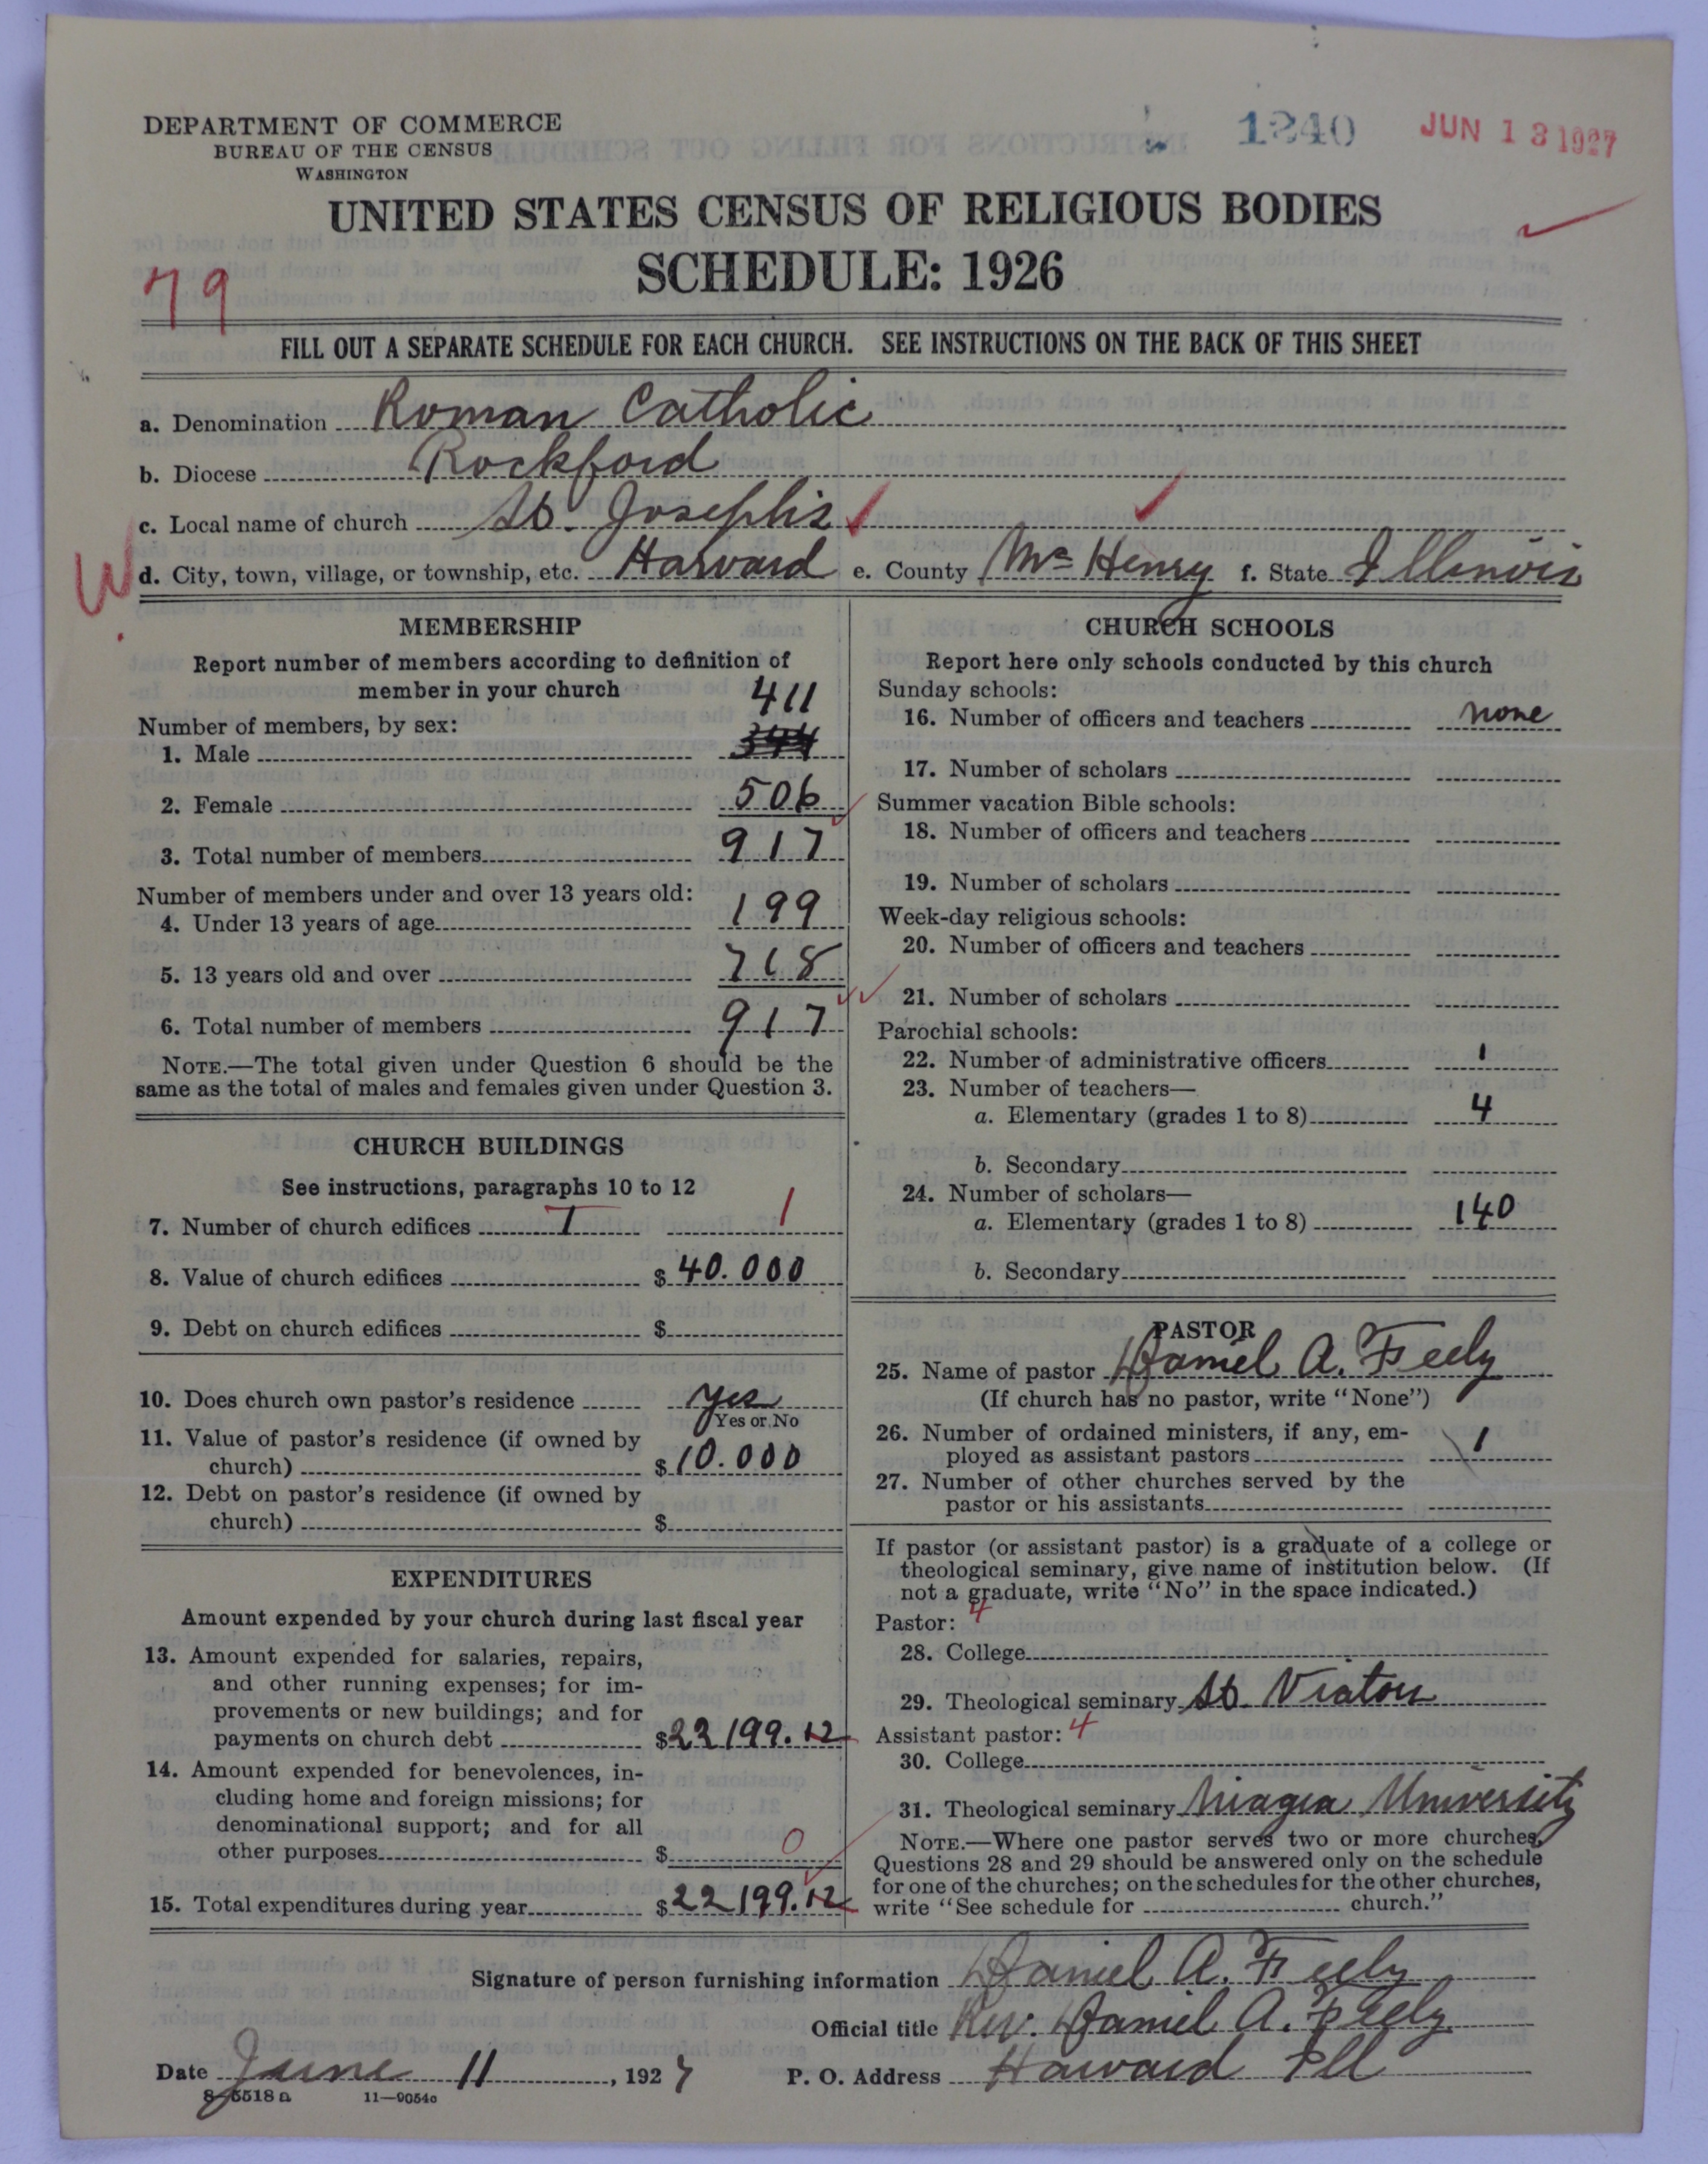 DEPARTMENT OF COMMERCE
BUREAU OF THE CENSUS
WASHINGTON
1240
JUN 13 1927
UNITED STATES CENSUS OF RELIGIOUS BODIES
SCHEDULE: 1926
79
FILL OUT A SEPARATE SCHEDULE FOR EACH CHURCH. SEE INSTRUCTIONS ON THE BACK OF THIS SHEET
a. Denomination Roman Catholic
b. Diocese Rockford
c. Local name of church St. Josephs
W
d. City, town, village, or township, etc. Harvard e. County Mc Henry f. State Illinois
MEMBERSHIP
Report number of members according to definition of
member in your church
Number of members, by sex:
411
1. Male 344
2. Female 506
3. Total number of members 917
Number of members under and over 13 years old:
4. Under 13 years of age 199
5. 13 years old and over 718
6. Total number of members 917
NOTE.—The total given under Question 6 should be the
same as the total of males and females given under Question 3.
CHURCH BUILDINGS
See instructions, paragraphs 10 to 12
7. Number of church edifices 1 1
8. Value of church edifices $ 40.000
9. Debt on church edifices $
10. Does church own pastor's residence Yes
Yes or No
11. Value of pastor's residence (if owned by
church) $ 10.000
12. Debt on pastor's residence (if owned by
church) $
EXPENDITURES
Amount expended by your church during last fiscal year
13. Amount expended for salaries, repairs,
and other running expenses; for im-
provements or new buildings; and for
payments on church debt $ 22199.12
14. Amount expended for benevolences, in-
cluding home and foreign missions; for
denominational support; and for all
other purposes $ 0
15. Total expenditures during year $ 22199.12
CHURCH SCHOOLS
Report here only schools conducted by this church
Sunday schools:
16. Number of officers and teachers none
17. Number of scholars
Summer vacation Bible schools:
18. Number of officers and teachers
19. Number of scholars
Week-day religious schools:
20. Number of officers and teachers
21. Number of scholars
Parochial schools:
22. Number of administrative officers 1
23. Number of teachers—
a. Elementary (grades 1 to 8) 4
b. Secondary
24. Number of scholars—
a. Elementary (grades 1 to 8) 140
b. Secondary
PASTOR
25. Name of pastor Daniel A. Feely
(If church has no pastor, write "None")
26. Number of ordained ministers, if any, em-
ployed as assistant pastors 1
27. Number of other churches served by the
pastor or his assistants
If pastor (or assistant pastor) is a graduate of a college or
theological seminary, give name of institution below. (If
not a graduate, write "No" in the space indicated.)
Pastor: 4
28. College
29. Theological seminary St. Viators
Assistant pastor: 4
30. College
31. Theological seminary Niagra University
NOTE.—Where one pastor serves two or more churches,
Questions 28 and 29 should be answered only on the schedule
for one of the churches; on the schedules for the other churches,
write "See schedule for church."
Signature of person furnishing information Daniel A. Feely
Official title Rev. Daniel A. Feely
Date June 11, 1927 P. O. Address Harvard Ill
8-5518 a 11—9054c